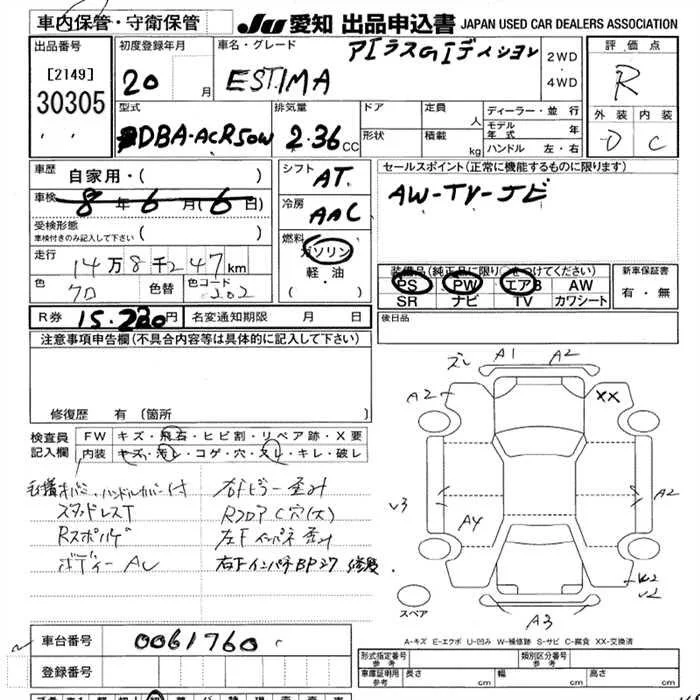 車内保管・守衛保管 JU 愛知 出品申込書 JAPAN USED CAR DEALERS ASSOCIATION
出品番号 初度登録年月 車名・グレード 評価点
[2149] 20 月 ESTIMA 2WD R
30305 4WD
型式 排気量 ドア 定員 人 ディーラー・並行 外装 内装
DBA-ACR50W 2.36 CC 形状 積載 kg モデル年式 年 D C
ハンドル 左・右
車歴 自家用・( ) シフト AT. セールスポイント(正常に機能するものに限ります)
車検 8 年 6 月(6 日) 冷房 AAC AW-TV-ナビ
受検形態 ( )
車検付きのみ記入して下さい
燃料 ガソリン
走行 14万8千247km 軽・油 装備品(純正品に限り○をつけてください) 新車保証書
PS PW エアB AW 有・無
色 色替 色コード 202 ( ) SR ナビ TV カワシート
R券 15.230円 名変通知期限 月 日 後日品
注意事項申告欄(不具合内容等は具体的に記入して下さい)
修復歴 有(箇所
検査員 FW キズ・飛石・ヒビ割・リペア跡・X要
記入欄 内装 キズ・汚レ・コゲ・穴・スレ・キレ・破レ
ズレ A1 A2
A2 XX
V3 A4 A2
スタッドレスT Rフロア(穴(大)
ボディーAU
スペア A3
A-キズ E-エクボ U-凹み W-補修跡 S-サビ C-腐食 XX-交換済
車台番号 0061760
登録番号
形式指定番号 参考 類別区分番号 参考
車庫証明用 参考 長さ cm 幅 cm 高さ cm